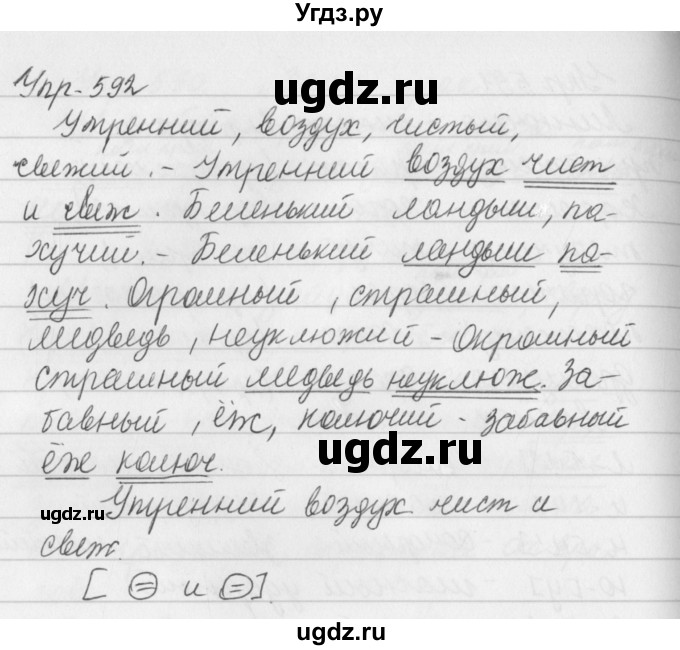 Угдз.ру
ugdz.ru
Упр-592
Утренний, воздух, чистый,
свежий. - Утренний воздух чист
и свеж. Беленький ландыш, па-
хучий. - Беленький ландыш па-
хуч. Огромный, страшный,
медведь, неуклюжий - Огромный
страшный медведь неуклюж. За-
бавный, ёж, колючий - забавный
ёж колюч.
ugdz.ru
ugdz.ru
Утренний воздух чист и
свеж.
[ = и = ].
ugdz.ru